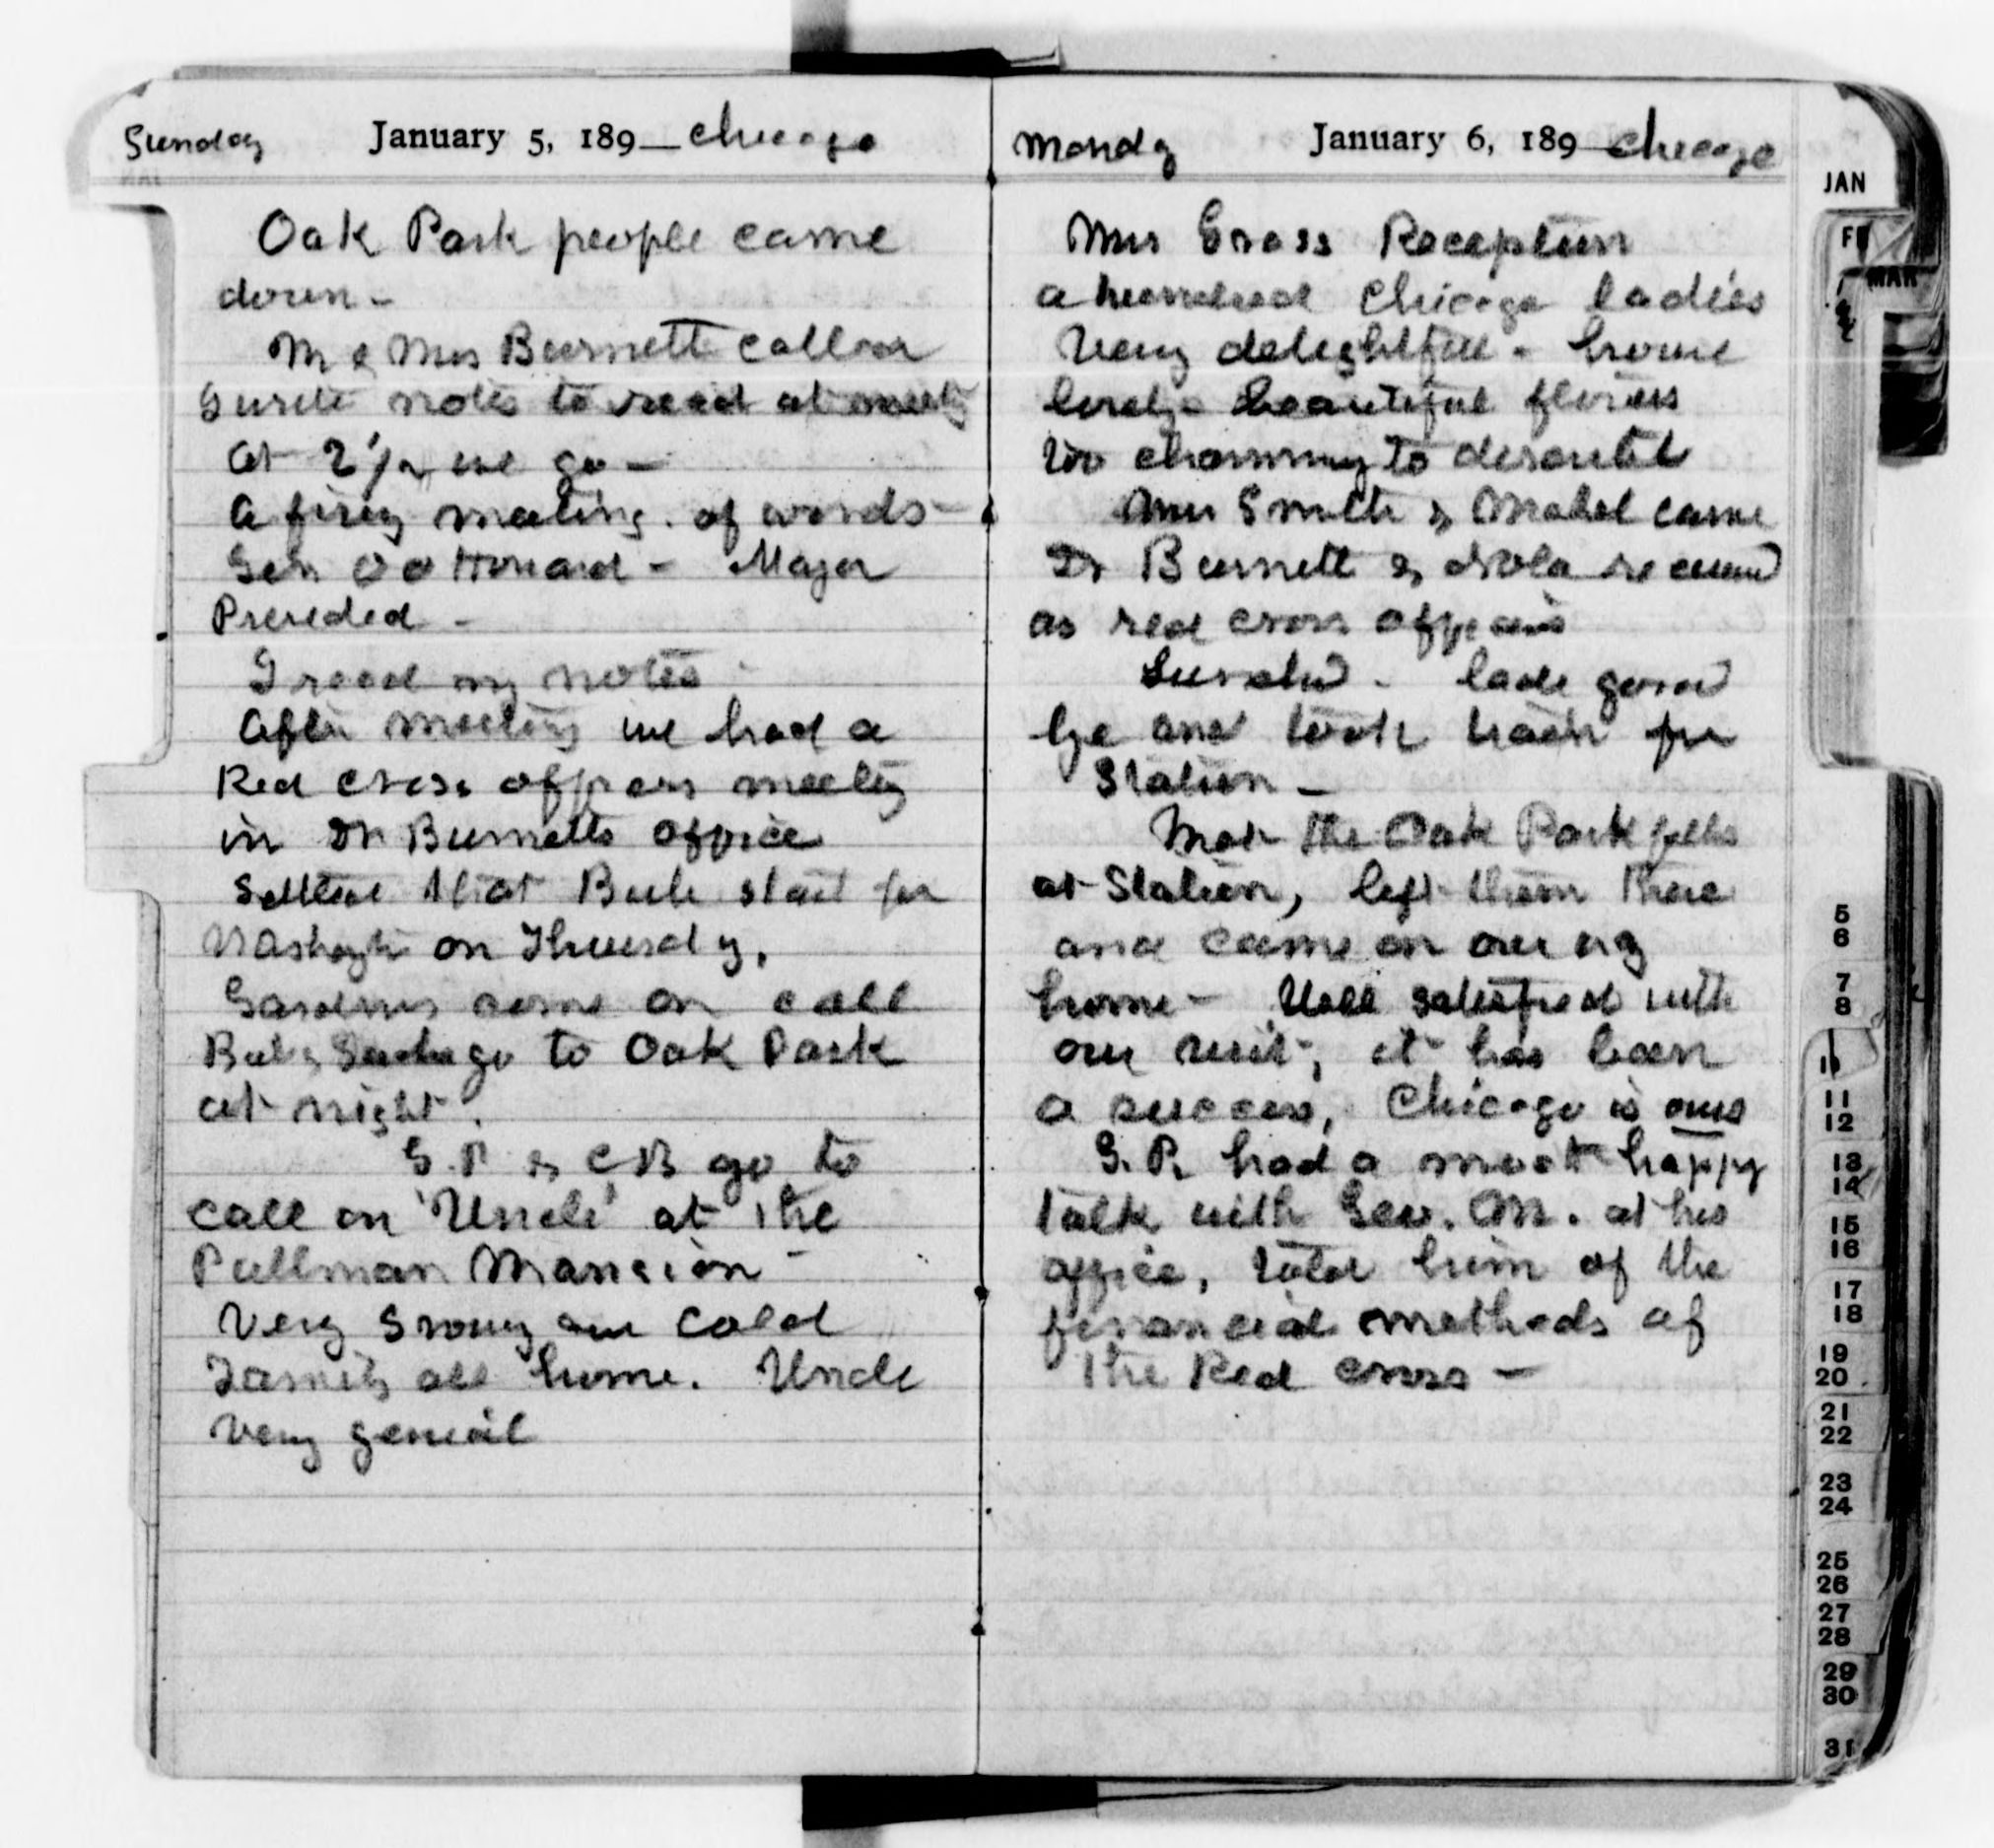 Sunday January 5, 189_ Chicago
Oak Park people came
down -
M & Mrs Burnett call on
I write notes to read at meetg
at 2 1/2 we go -
A firey meeting. of words -
Gen O O Howard - Mayor
Preceded -
I read my notes -
After meeting we had a
Red Cross officers meetig
in Dr Burnetts office
Settled that Bub start for
Washigtn on Thursdy,
Gardners come on call
Bub & go to Oak Park
at night.
G.P & CB go to
call on 'Uncle' at the
Pullman Mansion -
Very snowy and cold
Family all home. Uncle
very genial
Mondy January 6, 189_ Chicago
Mrs Gross Reception
a hundred Chicago ladies
Very delightful - house
lovely - beautiful flowers
too charming to describe
Mrs Smith & Mabel came
Dr Burnett & received
as red cross officers
bade good
bye and took hack for
Station -
Met the Oak Park folks
at Station, left them there
and came on our way
home - Well satisfied with
our visit, it has been
a success, Chicago is ours
G.P. had a most happy
talk with Geo. M. at his
office, told him of the
financial methods of
the Red Cross -
JAN
MAR
5
6
7
8
11
12
13
14
15
16
17
18
19
20
21
22
23
24
25
26
27
28
29
30
31